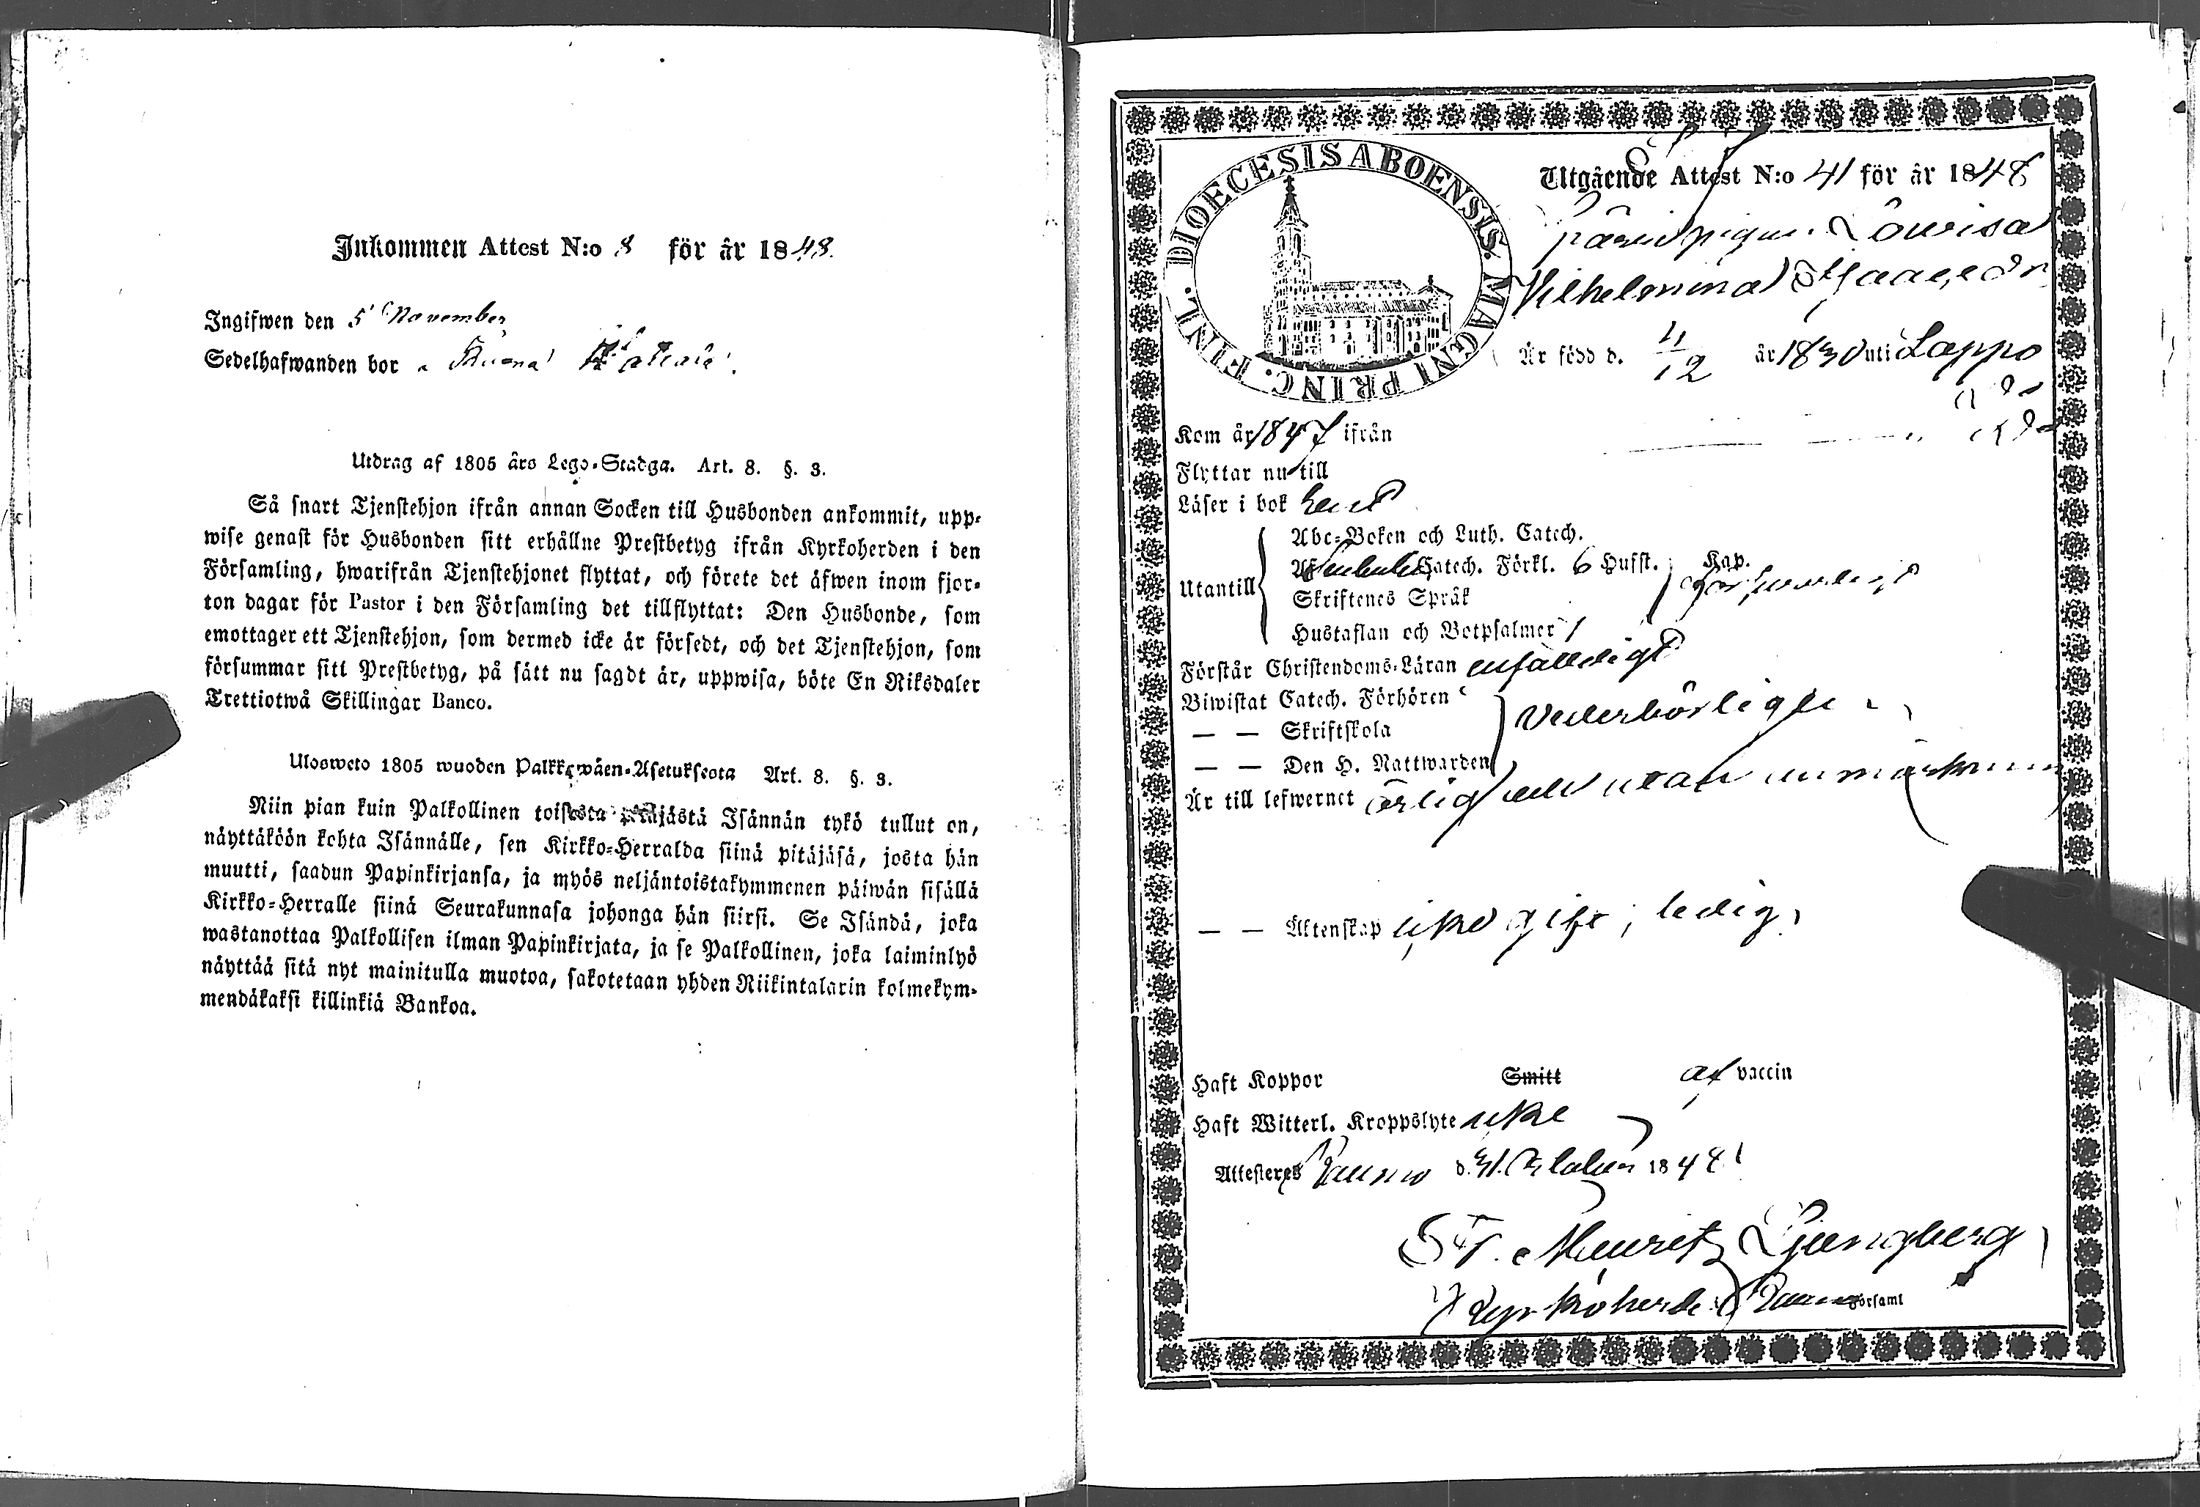 Inkommen Attest N:o 8 för år 1848.
Ingifwen den 5 November
Sedelhafwanden bor
Utdrag af 1805 års Lego-Stadga. Art. 8. §. 3.
Så snart Tjenstehjon ifrån annan Socken till Husbonden ankommit, upp-
wise genast för Husbonden sitt erhållne Prestbetyg ifrån Kyrkoherden i den
Församling, hwarifrån Tjenstehjonet flyttat, och förete det äfwen inom fjor-
ton dagar för Pastor i den Församling det tillflyttat: Den Husbonde, som
emottager ett Tjenstehjon, som dermed icke är försedt, och det Tjenstehjon, som
försummar sitt Prestbetyg, på sätt nu sagdt är, uppwisa, böte En Riksdaler
Trettiotwå Skillingar Banco.
Ulosweto 1805 wuoden Palkkawäen-Asetuksesta Art. 8. §. 3.
Niin pian kuin Palkollinen toisesta pitäjästä Isännän tykö tullut on,
näyttäköön kohta Isännälle, sen Kirkko-Herralda siinä pitäjäsä, josta hän
muutti, saadun Papinkirjansa, ja myös neljäntoistakymmenen päiwän sisällä
Kirkko-Herralle siinä Seurakunnasa johonga hän siirsi. Se Isändä, joka
wastanottaa Palkollisen ilman Papinkirjata, ja se Palkollinen, joka laiminlyö
näyttää sitä nyt mainitulla muotoa, sakotetaan yhden Riikintalarin kolmekym-
mendäkaksi killinkiä Bankoa.
DIOECESIS ABOENSIS. MAGNI PRINC. FINL.
Utgående Attest N:o 41 för år 1848
pigan Lovisa
Vilhelmina
Är född d. 11/12 år 1830 uti Lappo
Kom år 1847 ifrån
Flyttar nu till
Läser i bok rent
Utantill
Abc-Boken och Luth. Catech.
Catech. Förkl. 6 Hufst. Kap.
Skriftenes Språk
Hustaflan och Botpsalmer
försvarligt
Förstår Christendoms-Läran enfaldigt
Biwistat Catech. Förhören
— — Skriftskola
— — Den H. Nattwarden
vederbörligen
Är till lefwernet ärlig och utan anmärkning
— — Äktenskap icke gift, ledig
Haft Koppor Smitt af vaccin
Haft Witterl. Kroppslyte icke
Attesteres Raumo d. 31 October 1848
Mauritz Ljungberg
Kyrkoherde i Raumo Församl